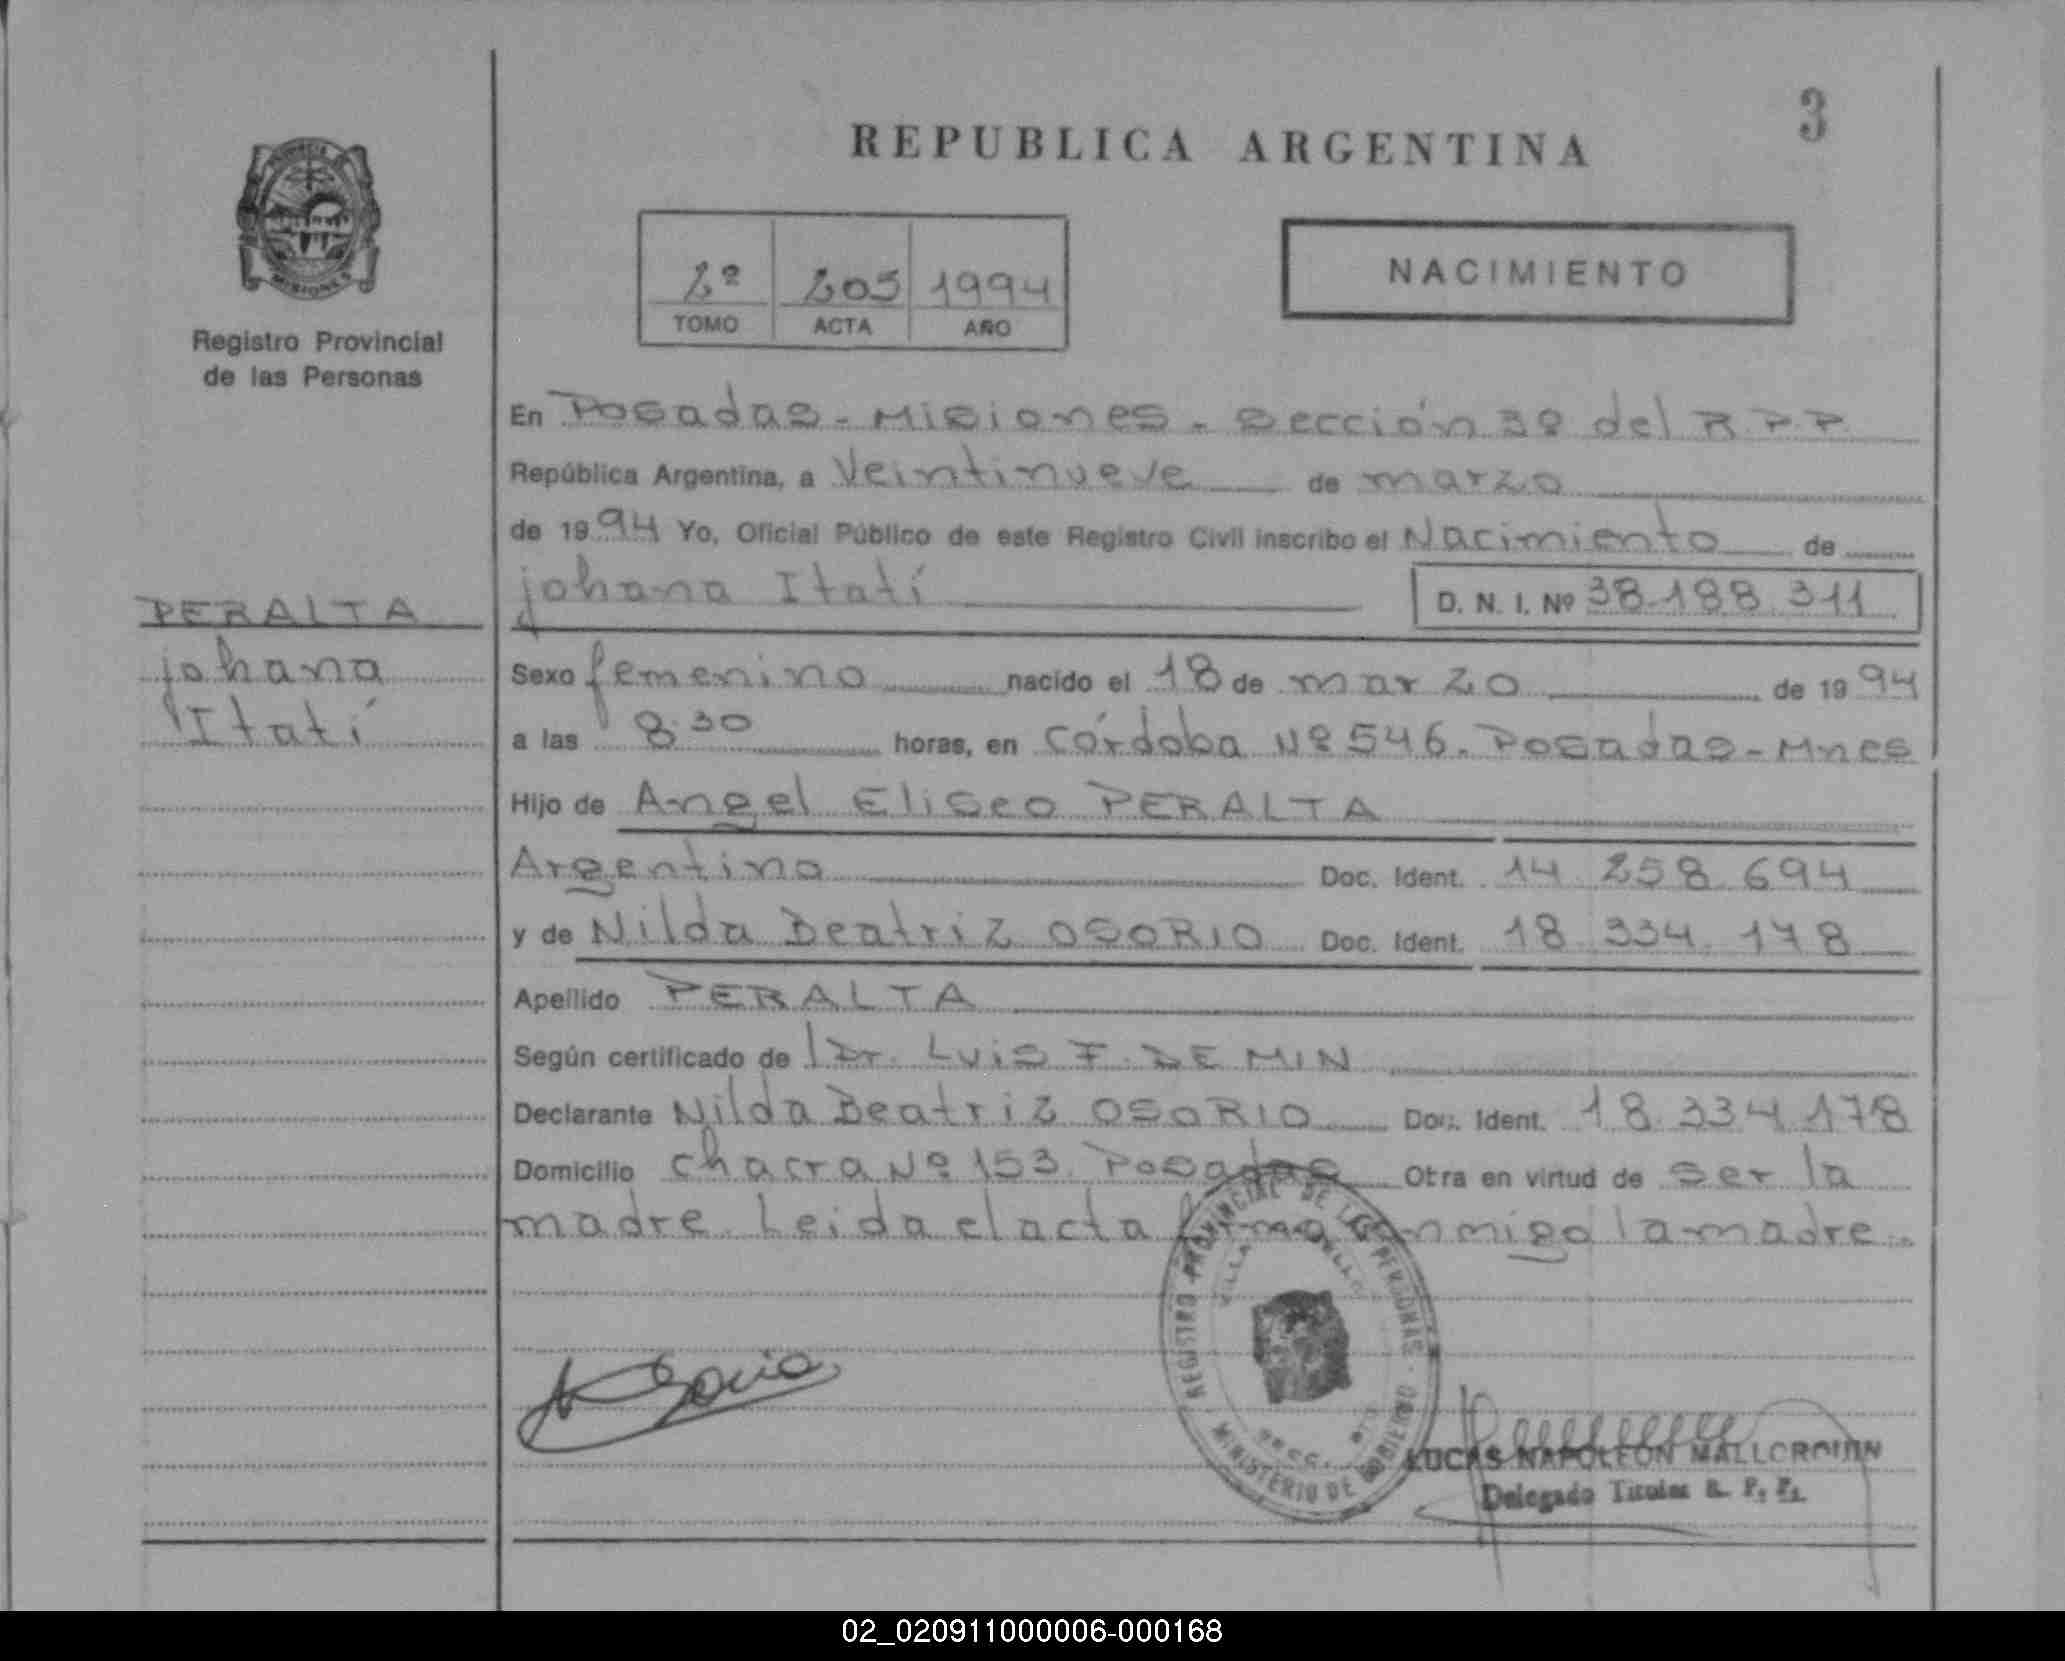 3
REPUBLICA ARGENTINA
2º 205 1994
TOMO ACTA AÑO
NACIMIENTO
Registro Provincial
de las Personas
En Posadas - Misiones - Sección 3º del R.P.P.
República Argentina, a Veintinueve de marzo
de 1994 Yo, Oficial Público de este Registro Civil inscribo el Nacimiento de
johana Itatí D. N. I. Nº 38.188.311
PERALTA
johana
Itatí
Sexo femenino nacido el 18 de marzo de 1994
a las 8:30 horas, en Córdoba Nº 546. Posadas - Mnes
Hijo de Angel Eliseo PERALTA
Argentino Doc. Ident. 14.258.694
y de Nilda Beatriz OSORIO Doc. Ident. 18.334.178
Apellido PERALTA
Según certificado de l Dr. Luis F. DE MIN
Declarante Nilda Beatriz OSORIO Doc. Ident. 18.334.178
Domicilio chacra Nº 153. Posadas Otra en virtud de ser la
madre. Leida el acta firma conmigo la madre.
REGISTRO PROVINCIAL DE LAS PERSONAS
MINISTERIO DE GOBIERNO
LUCAS NAPOLEON MALLORQUIN
Delegado Titular R. P. P.
02_020911000006-000168